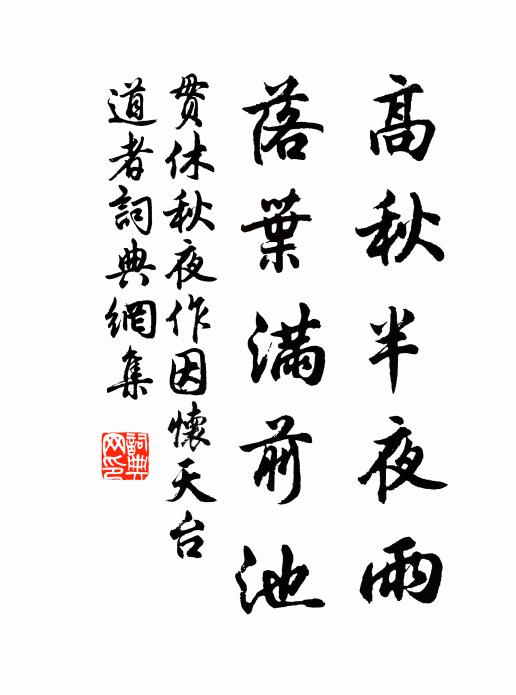 高秋半夜雨
落葉滿前池
貫休秋夜作因懷天台
道者詞典網集
詞典
网印